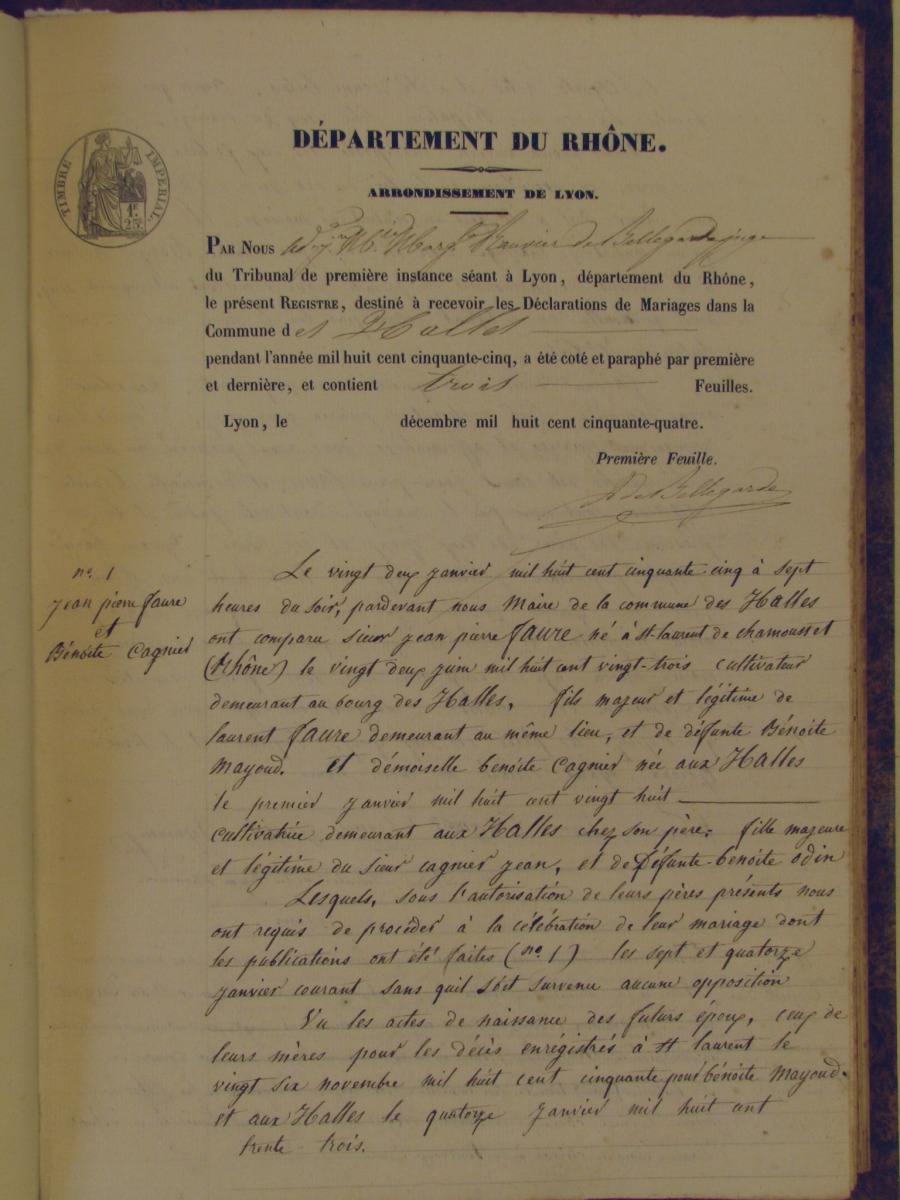 DÉPARTEMENT DU RHÔNE.
ARRONDISSEMENT DE LYON.
TIMBRE IMPÉRIAL.
1F.
25c.
PAR NOUS de Bellegarde juge
du Tribunal de première instance séant à Lyon, département du Rhône,
le présent REGISTRE, destiné à recevoir les Déclarations de Mariages dans la
Commune des Halles
pendant l'année mil huit cent cinquante-cinq, a été coté et paraphé par première
et dernière, et contient trois Feuilles.
Lyon, le décembre mil huit cent cinquante-quatre.
Première Feuille.
de Bellegarde
no. 1
Jean pierre faure
et
Bénoite Cagnier
Le vingt deux janvier mil huit cent cinquante cinq à sept
heures du soir, pardevant nous Maire de la commune des Halles
ont comparu sieur jean pierre faure né à st-laurent de chamousset
(Rhône) le vingt deux juin mil huit cent vingt-trois cultivateur
demeurant au bourg des Halles, fils majeur et légitime de
laurent faure demeurant au même lieu, et de défunte Bénoite
Mayoud. et démoiselle benoite Cagnier née aux Halles
le premier janvier mil huit cent vingt huit
cultivatrice demeurant aux Halles chez son père, fille majeure
et légitime du sieur cagnier jean, et de défunte benoite odin
Lesquels, sous l'autorisation de leurs pères présents nous
ont requis de procéder à la célébration de leur mariage dont
les publications ont été faites (no. 1) les sept et quatorze
janvier courant sans quil soit survenu aucune opposition
Vu les actes de naissance des futurs époux, ceux de
leurs mères pour les décès enrégistrés à st laurent le
vingt six novembre mil huit cent cinquante pour bénoite Mayoud.
et aux Halles le quatorze janvier mil huit cent
trente trois.